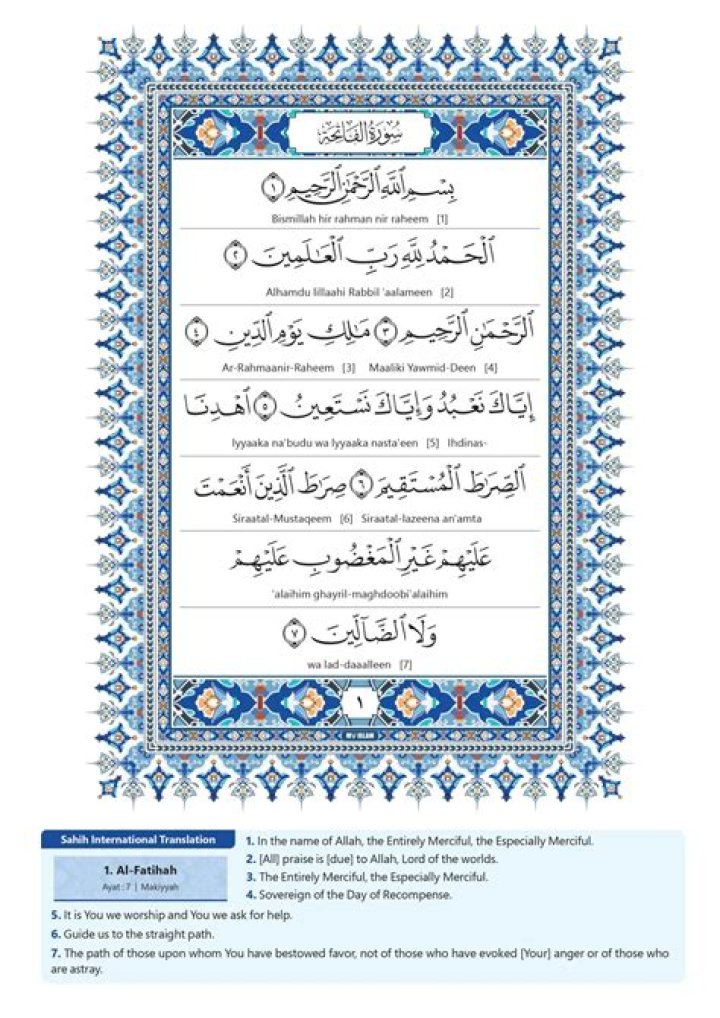 سُورَةُ الفَاتِحَةِ
بِسْمِ ٱللَّهِ ٱلرَّحْمَٰنِ ٱلرَّحِيمِ ١
Bismillah hir rahman nir raheem [1]
ٱلْحَمْدُ لِلَّهِ رَبِّ ٱلْعَٰلَمِينَ ٢
Alhamdu lillaahi Rabbil 'aalameen [2]
ٱلرَّحْمَٰنِ ٱلرَّحِيمِ ٣ مَٰلِكِ يَوْمِ ٱلدِّينِ ٤
Ar-Rahmaanir-Raheem [3] Maaliki Yawmid-Deen [4]
إِيَّاكَ نَعْبُدُ وَإِيَّاكَ نَسْتَعِينُ ٥ ٱهْدِنَا
Iyyaaka na'budu wa Iyyaaka nasta'een [5] Ihdinas-
ٱلصِّرَٰطَ ٱلْمُسْتَقِيمَ ٦ صِرَٰطَ ٱلَّذِينَ أَنْعَمْتَ
Siraatal-Mustaqeem [6] Siraatal-lazeena an'amta
عَلَيْهِمْ غَيْرِ ٱلْمَغْضُوبِ عَلَيْهِمْ
'alaihim ghayril-maghdoobi'alaihim
وَلَا ٱلضَّآلِّينَ ٧
wa lad-daaalleen [7]
١
Sahih International Translation
1. Al-Fatihah
Ayat : 7 | Makiyyah
1. In the name of Allah, the Entirely Merciful, the Especially Merciful.
2. [All] praise is [due] to Allah, Lord of the worlds.
3. The Entirely Merciful, the Especially Merciful.
4. Sovereign of the Day of Recompense.
5. It is You we worship and You we ask for help.
6. Guide us to the straight path.
7. The path of those upon whom You have bestowed favor, not of those who have evoked [Your] anger or of those who
are astray.